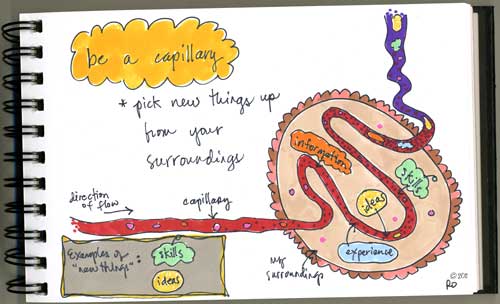 be a capillary
* pick new things up
from your
surroundings
direction
of flow
capillary
information
skills
ideas
experience
my
surroundings
Examples of
"new things":
skills
ideas
© 2011
RO